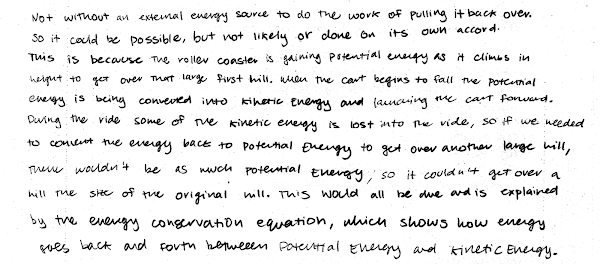 Not without an external energy source to do the work of pulling it back over.
So it could be possible, but not likely or done on its own accord.
This is because the roller coaster is gaining potential energy as it climbs in
height to get over that large first hill. When the cart begins to fall the potential
energy is being converted into kinetic Energy and launching the cart forward.
During the ride some of the kinetic energy is lost into the ride, so if we needed
to convert the energy back to Potential Energy to get over another large hill,
there wouldn't be as much potential Energy, so it couldn't get over a
hill the size of the original hill. This would all be due and is explained
by the energy conservation equation, which shows how energy
goes back and forth between Potential Energy and Kinetic Energy.